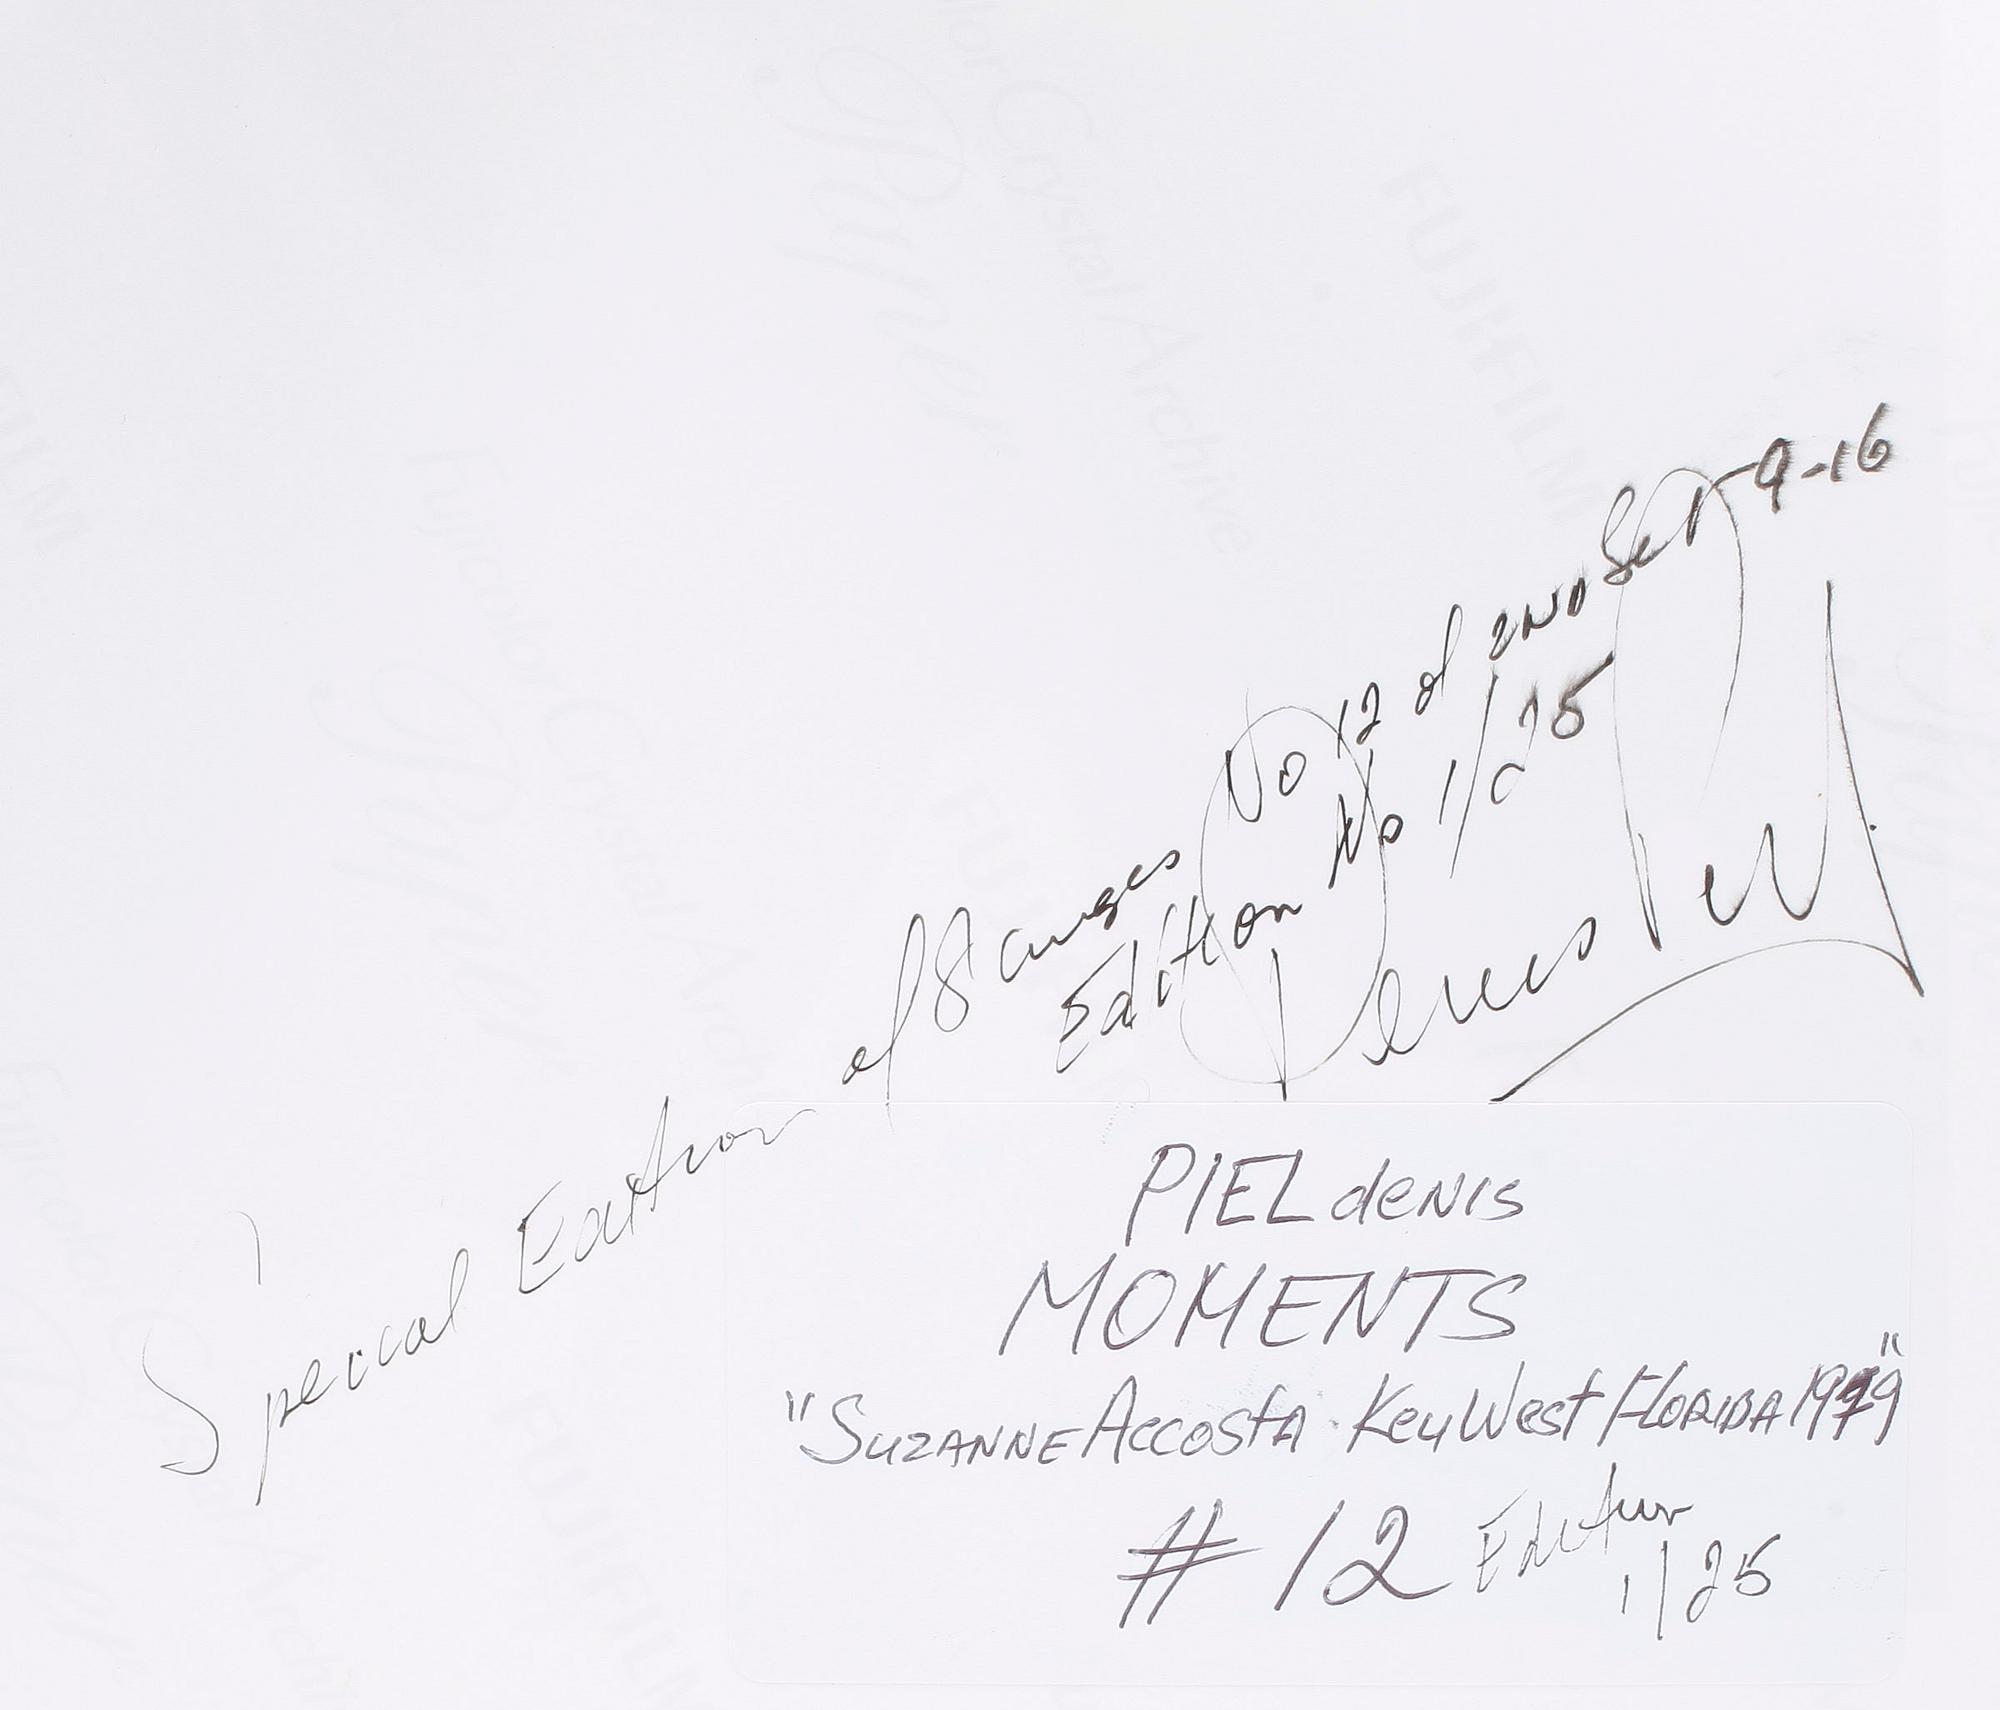 Special Edition of 8 images No 12 of 2ND Set 1-9-16
Edition No 1/25
Denis Piel
PIEL denis
MOMENTS
"SUZANNE ACCOSTA. Key West FLORIDA 1979"
# 12 Edition
1/25
FUJIFILM
Fujicolor Crystal Archive